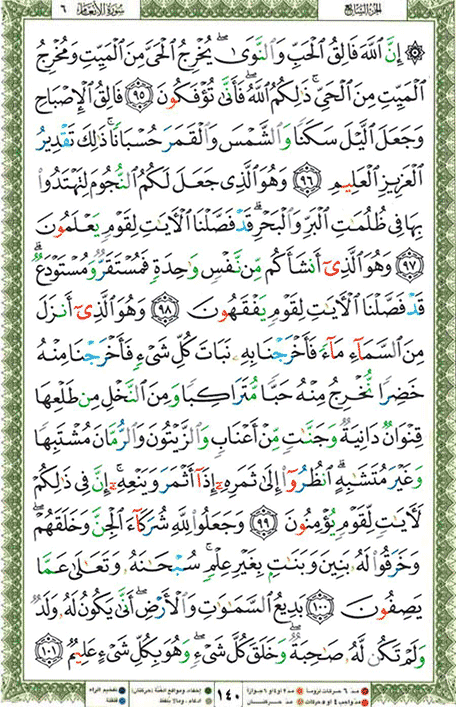 الجزء السابع سورة الأنعام ٦
۞ إِنَّ ٱللَّهَ فَالِقُ ٱلْحَبِّ وَٱلنَّوَىٰ ۖ يُخْرِجُ ٱلْحَىَّ مِنَ ٱلْمَيِّتِ وَمُخْرِجُ
ٱلْمَيِّتِ مِنَ ٱلْحَىِّ ۚ ذَٰلِكُمُ ٱللَّهُ ۖ فَأَنَّىٰ تُؤْفَكُونَ ٩٥ فَالِقُ ٱلْإِصْبَاحِ
وَجَعَلَ ٱلَّيْلَ سَكَنًا وَٱلشَّمْسَ وَٱلْقَمَرَ حُسْبَانًا ۚ ذَٰلِكَ تَقْدِيرُ
ٱلْعَزِيزِ ٱلْعَلِيمِ ٩٦ وَهُوَ ٱلَّذِى جَعَلَ لَكُمُ ٱلنُّجُومَ لِتَهْتَدُوا۟
بِهَا فِى ظُلُمَٰتِ ٱلْبَرِّ وَٱلْبَحْرِ ۗ قَدْ فَصَّلْنَا ٱلْءَايَٰتِ لِقَوْمٍ يَعْلَمُونَ
٩٧ وَهُوَ ٱلَّذِىٓ أَنشَأَكُم مِّن نَّفْسٍ وَٰحِدَةٍ فَمُسْتَقَرٌّ وَمُسْتَوْدَعٌ ۗ
قَدْ فَصَّلْنَا ٱلْءَايَٰتِ لِقَوْمٍ يَفْقَهُونَ ٩٨ وَهُوَ ٱلَّذِىٓ أَنزَلَ
مِنَ ٱلسَّمَآءِ مَآءً فَأَخْرَجْنَا بِهِۦ نَبَاتَ كُلِّ شَىْءٍ فَأَخْرَجْنَا مِنْهُ
خَضِرًا نُّخْرِجُ مِنْهُ حَبًّا مُّتَرَاكِبًا وَمِنَ ٱلنَّخْلِ مِن طَلْعِهَا
قِنْوَانٌ دَانِيَةٌ وَجَنَّٰتٍ مِّنْ أَعْنَابٍ وَٱلزَّيْتُونَ وَٱلرُّمَّانَ مُشْتَبِهًا
وَغَيْرَ مُتَشَٰبِهٍ ۗ ٱنظُرُوٓا۟ إِلَىٰ ثَمَرِهِۦٓ إِذَآ أَثْمَرَ وَيَنْعِهِۦٓ ۚ إِنَّ فِى ذَٰلِكُمْ
لَءَايَٰتٍ لِّقَوْمٍ يُؤْمِنُونَ ٩٩ وَجَعَلُوا۟ لِلَّهِ شُرَكَآءَ ٱلْجِنَّ وَخَلَقَهُمْ ۖ
وَخَرَقُوا۟ لَهُۥ بَنِينَ وَبَنَٰتٍۭ بِغَيْرِ عِلْمٍ ۚ سُبْحَٰنَهُۥ وَتَعَٰلَىٰ عَمَّا
يَصِفُونَ ١٠٠ بَدِيعُ ٱلسَّمَٰوَٰتِ وَٱلْأَرْضِ ۖ أَنَّىٰ يَكُونُ لَهُۥ وَلَدٌ
وَلَمْ تَكُن لَّهُۥ صَٰحِبَةٌ ۖ وَخَلَقَ كُلَّ شَىْءٍ ۖ وَهُوَ بِكُلِّ شَىْءٍ عَلِيمٌ ١٠١
مد ٦ حركات لزوماً مد ٢ او ٤ او ٦ جوازاً ١٤٠ إخفاء، ومواقع الغنة (حركتان) تفخيم الراء
مد واجب ٤ او ٥ حركات مد حركتان إدغام، وما لا يلفظ قلقلة